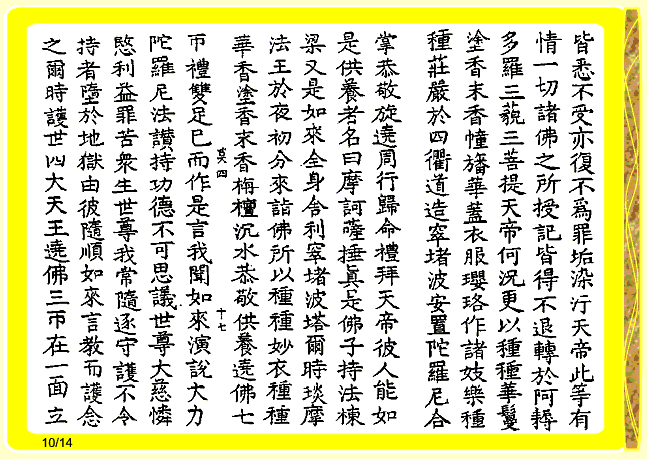 皆悉不受亦復不為罪垢染汙天帝此等有
情一切諸佛之所授記皆得不退轉於阿耨
多羅三藐三菩提天帝何況更以種種華鬘
塗香末香幢旛華蓋衣服瓔珞作諸妓樂種
種莊嚴於四衢道造窣堵波安置陀羅尼合
掌恭敬旋遶周行歸命禮拜天帝彼人能如
是供養者名曰摩訶薩埵真是佛子持法棟
梁又是如來全身舍利窣堵波塔爾時琰摩
法王於夜初分來詣佛所以種種妙衣種種
華香塗香末香栴檀沉水恭敬供養遶佛七
英四 十七
帀禮雙足已而作是言我聞如來演說大力
陀羅尼法讚持功德不可思議世尊大慈憐
愍利益罪苦眾生世尊我常隨逐守護不令
持者墮於地獄由彼隨順如來言教而護念
之爾時護世四大天王遶佛三帀在一面立
10/14